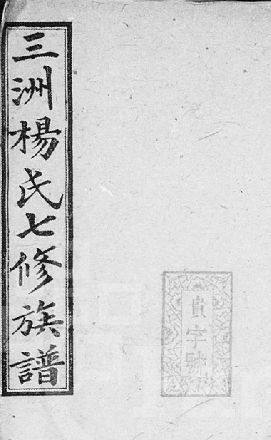 三洲楊氏七修族譜
字號